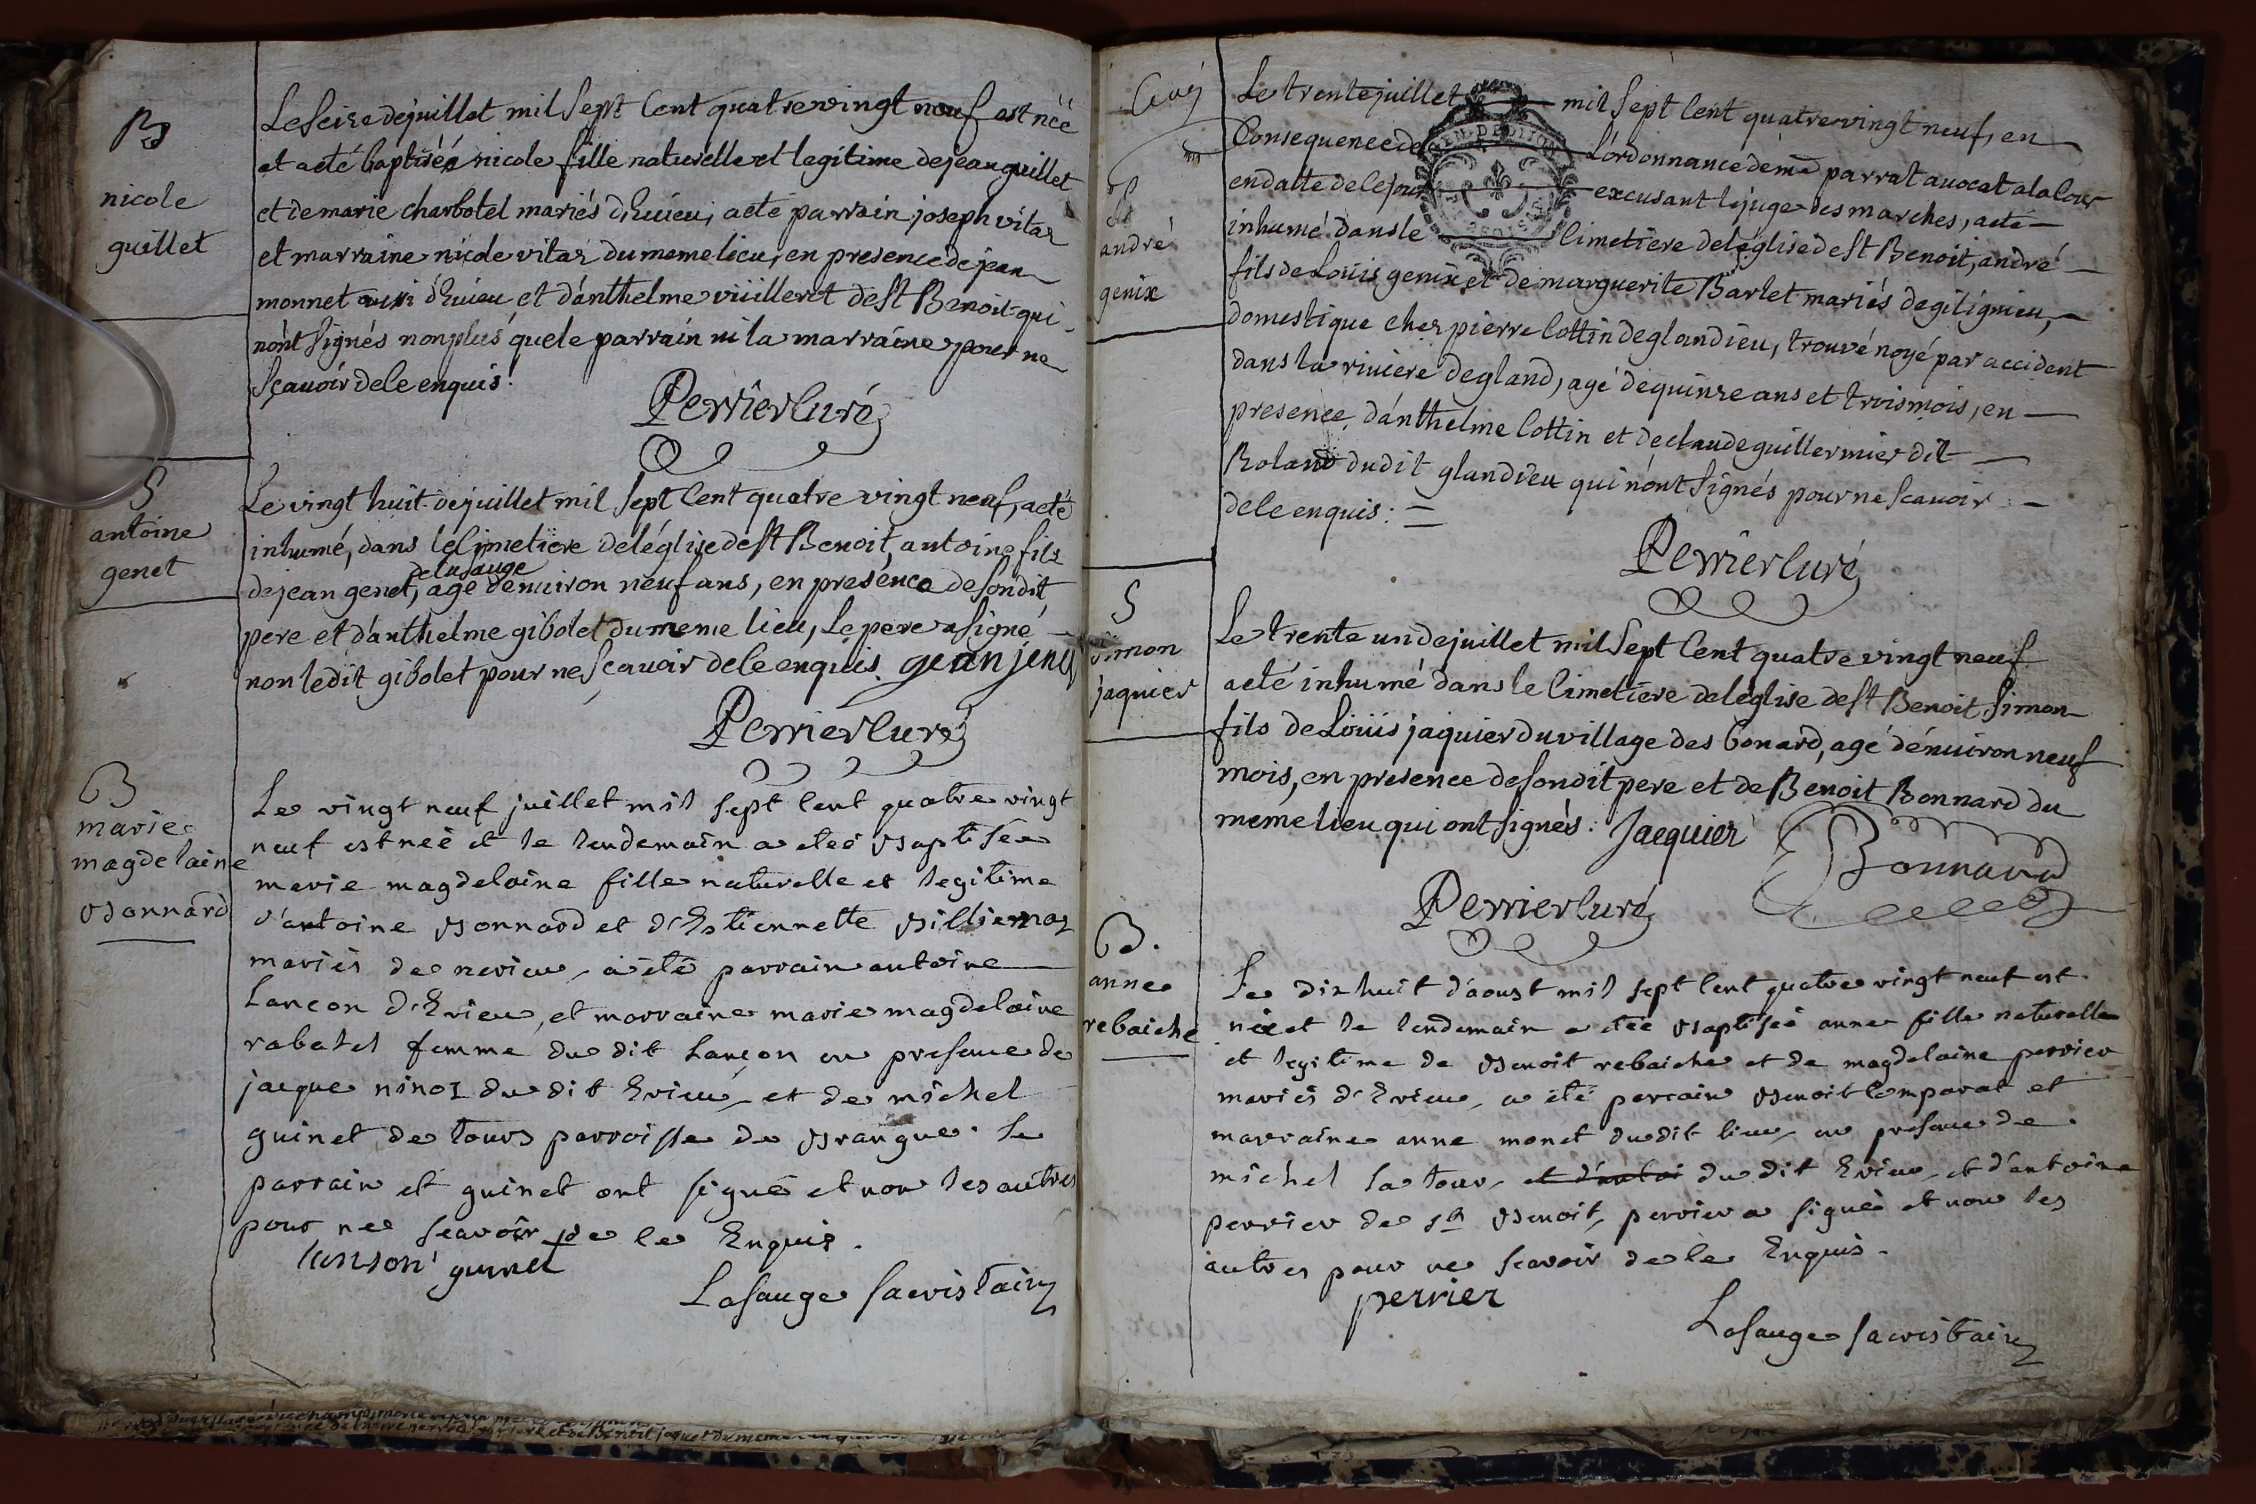 B
nicole
guillet
Le seize de juillet mil sept cent quatre vingt neuf est néé
et a eté baptiséé nicole fille naturelle et legitime de jean guillet
et de marie charbotel mariés d'Evieu, a eté parrain joseph vitaz
et marraine nicole vitaz du meme lieu, en presence de jean
monnet aussi d'Evieu et d'anthelme viiilleret de st Benoit qui
n'ont signés non plus que le parrain ni la marraine pour ne
sçavoir de ce enquis.
Perrier curé
S
antoine
genet
Le vingt huit de juillet mil sept cent quatre vingt neuf, a eté
inhumé, dans le cimetiere de l'église de st Benoit, antoine fils
de la sauge
de jean genet, agé d'environ neuf ans, en presence de son dit
pere et d'anthelme gibolet du meme lieu, Le pere a signé
non le dit gibolet pour ne sçavoir de ce enquis. gean jenet
Perrier curé
B
marie
magdelaine
Bonnard
Le vingt neuf juillet mil sept cent quatre vingt
neuf est neé et le lendemain a eteé Baptisée
marie magdelaine fille naturelle et legitime
d'antoine Bonnard et d'Estiennette Billiemaz
mariés de nerieu, a été parrain antoine
Lancon d'Evieu, et marraine marie magdelaine
rabatel femme du dit Lançon en presence de
jacque ninoz du dit Evieu, et de michel
guinet de tours parroisse de Brangue. Le
parrain et guinet ont signé et non les autres
pour ne scavoir de ce Enquis.
lanson guinet
Lasauge sacristain
Cuvj
S
andré
genix
Le trente juillet mil sept cent quatre vingt neuf, en
Consequence de L'ordonnance de me parrat avocat a la Cour
en datte de ce jour excusant le juge des marches, a eté
inhumé dans le Cimetiere de l'église de st Benoit, andré
fils de Loüis genix et de marguerite Barlet mariés de gilignieu,
domestique chez pierre Cottin de glandieu, trouvé noyé par accident
dans la riviere de gland, agé de quinze ans et trois mois, en
presence d'anthelme Cottin et de claude guillermier dit
Roland dudit glandieu qui n'ont signés pour ne scavoir
de ce enquis: =
Perrier curé
S
simon
jaquier
Le trente un de juillet mil sept cent quatre vingt neuf
a eté inhumé dans le Cimetiere de l'église de st Benoit, simon
fils de Loüis jaquier du village des bonard, agé d'environ neuf
mois, en presence de son dit pere et de Benoit Bonnard du
meme lieu qui ont signés: Jacquier
Bonnard
Perrier curé
B.
anne
rebaiche
Le dix huit d'aoust mil sept cent quatre vingt neuf est
néé et le lendemain a eteé Baptiseé anne fille naturelle
et legitime de Benoit rebaiche et de magdelaine perrier
mariés d'Evieu, a été parrain Benoit Comparat et
marraine anne monet dudit lieu en presence de
michel la tour, et d'antoi du dit Evieu, et d'antoine
perrier de st Benoit, perrier a signé et non les
autres pour ne scavoir de ce Enquis.
perrier
Lasauge sacristain